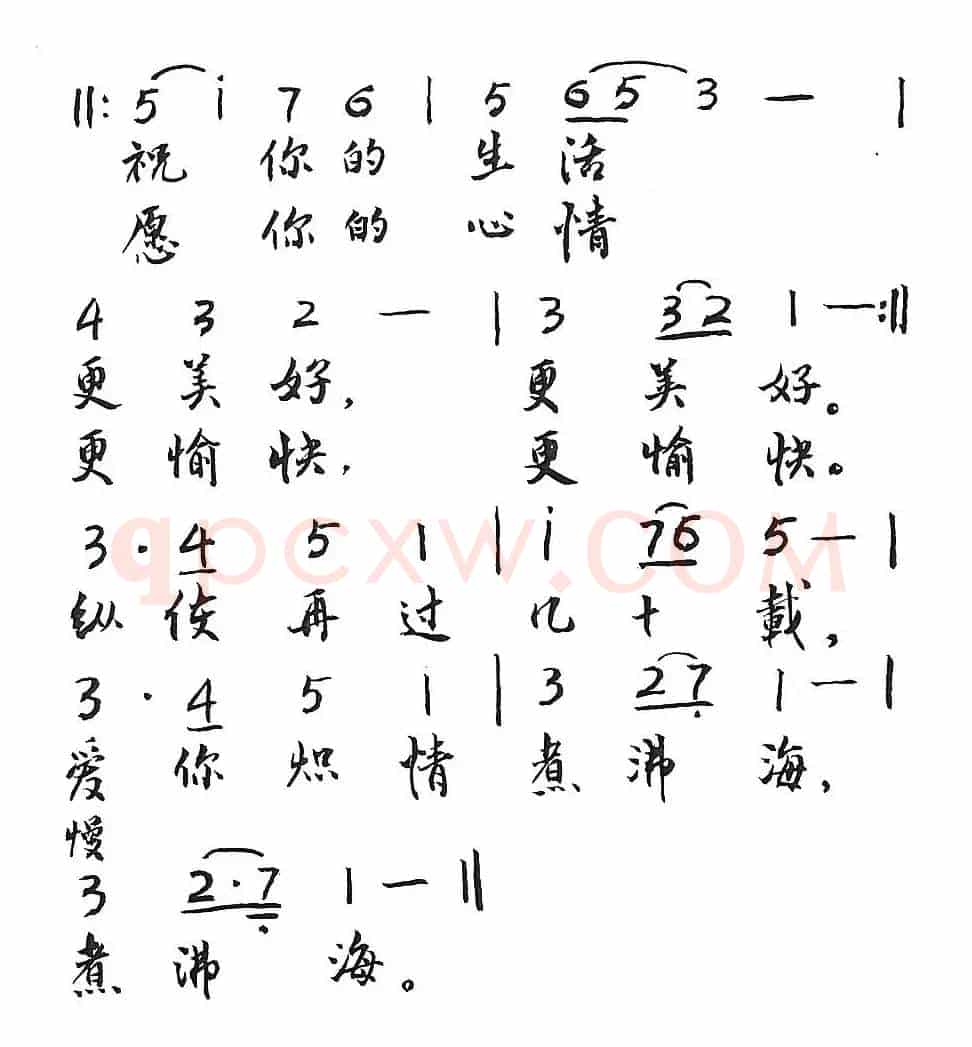 ||: 5 i 7 6 | 5 6 5 3 — |
祝 你 的 生 活
愿 你 的 心 情
4 3 2 — | 3 3 2 1 — :||
更 美 好， 更 美 好。
更 愉 快， 更 愉 快。
3 · 4 5 1 | i 7 6 5 — |
qpcxw.COM
纵 使 再 过 几 十 載，
3 · 4 5 1 | 3 2 7̣ 1 — |
爱 你 炽 情 煮 沸 海，
慢
3 2 · 7̣ 1 — ||
煮 沸 海。